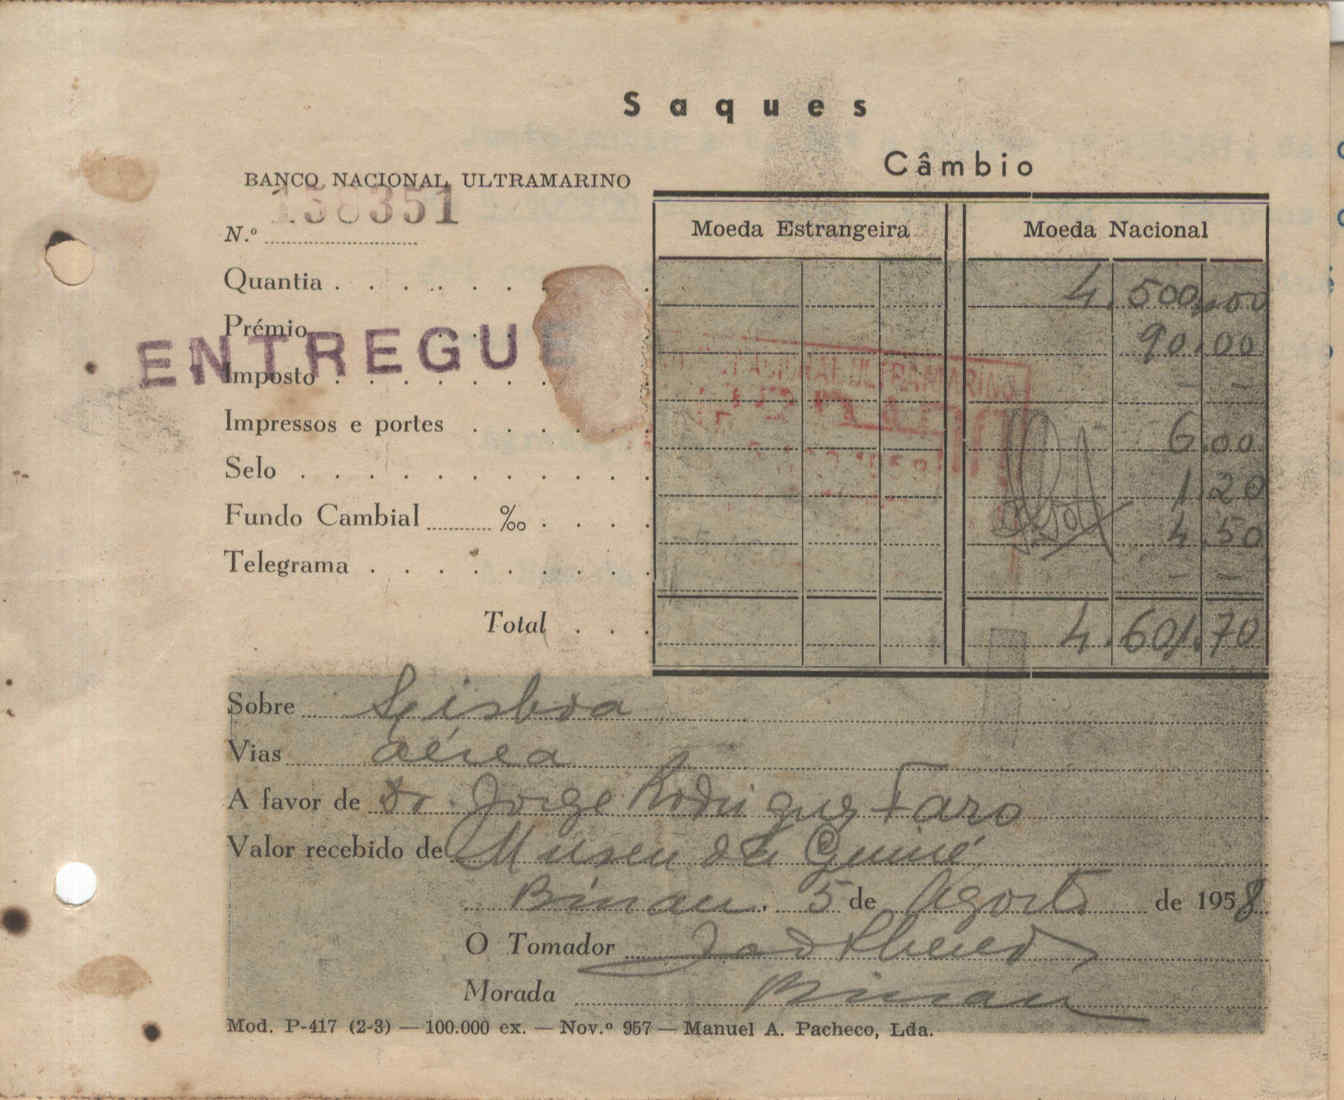 Saques
Câmbio
BANCO NACIONAL ULTRAMARINO
138351
N.º
Moeda Estrangeira Moeda Nacional
Quantia 4.500,00
Prémio 90.00
ENTREGUE
Imposto - -
NACIONAL ULTRAMARINO
Impressos e portes 6.00
Selo 1.20
Fundo Cambial ‰ 4.50
Telegrama - -
Total 4.601.70
Sobre Lisboa
Vias aérea
A favor de Dr. Jorge Rodrigues Faro
Valor recebido de Museu da Guiné
Bissau. 5 de Agosto de 1958
O Tomador
Morada Bissau
Mod. P-417 (2-3) — 100.000 ex. — Nov.º 957 — Manuel A. Pacheco, Lda.